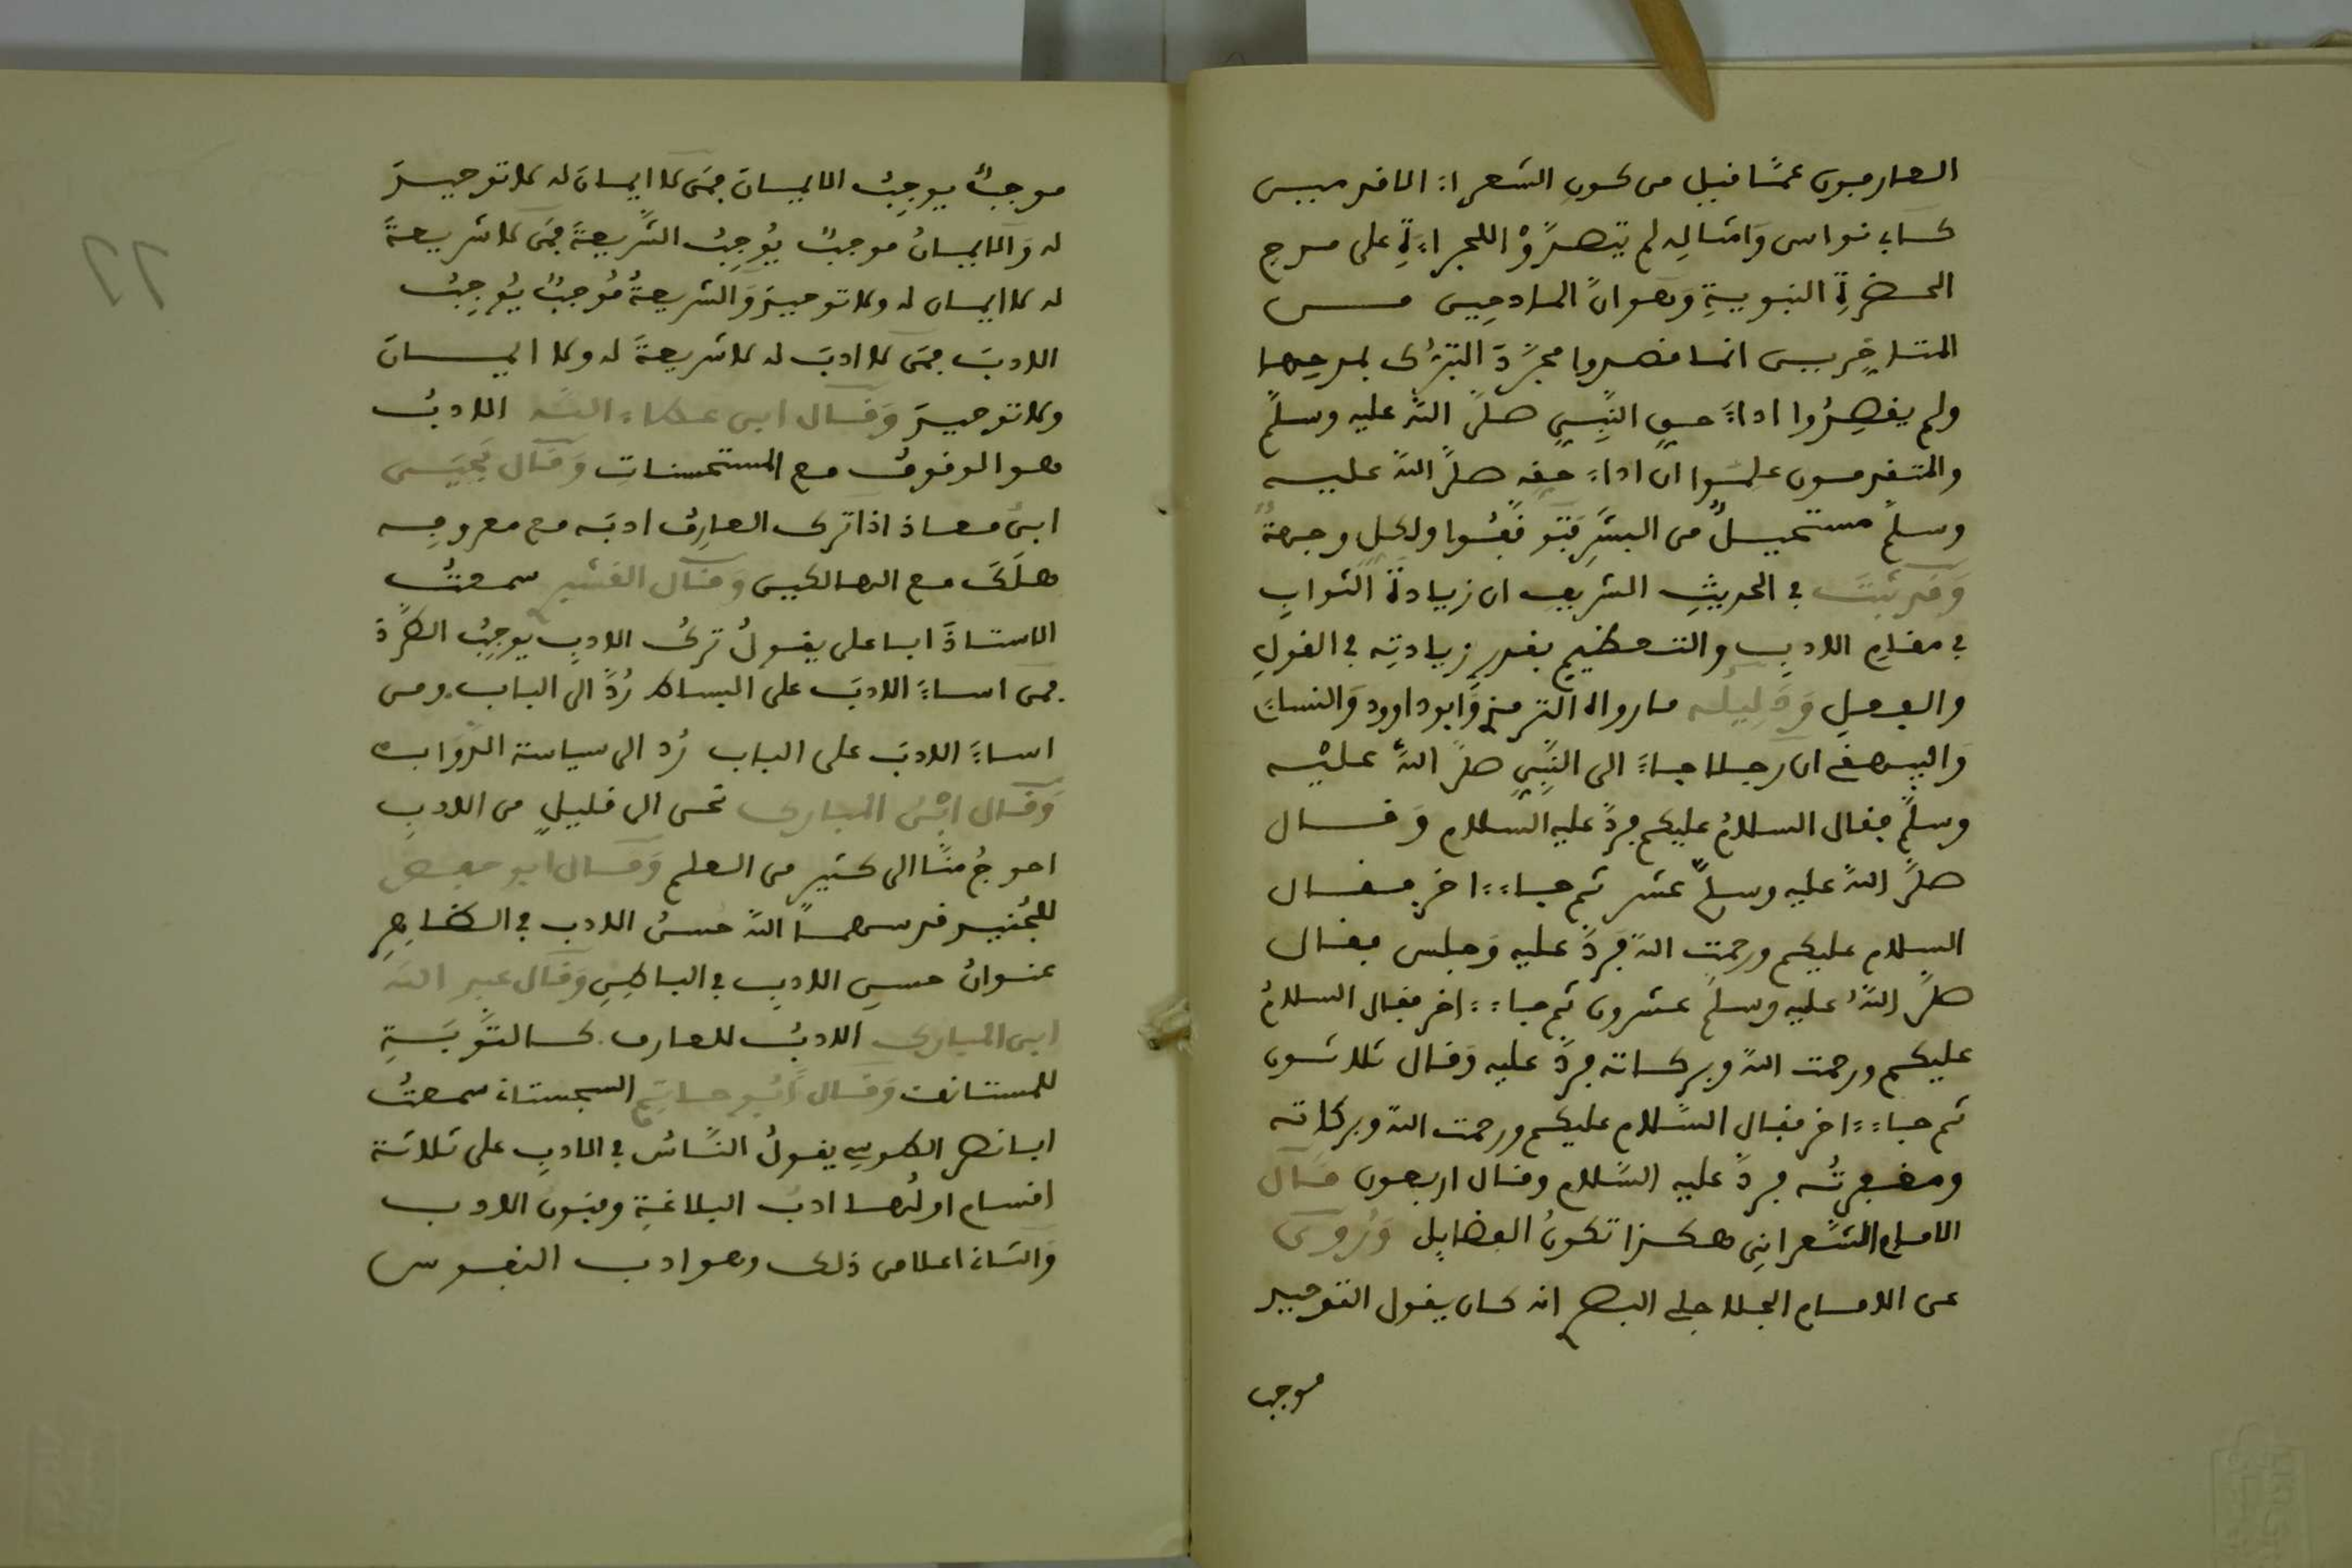 العارفون عمّا قيل من كون الشعراء الاقدمين
كابي نواس وَامثالِه لم يتصدَّوْا للجراءَةِ على مدح
الحضرةِ النبويةِ وَهو انَّ المادحِين مــن
المتاخرين انما قصدوا مجرَّدَ التبرُّك بمدحِها
ولم يقصِدُوا اداءَ حق النَّبِيِّ صلَّى اللَّه عليه وسلَّم
والمتقدمون علموا انَّ اداءَ حقه صلَّى اللَّه عليــه
وسلَّم مستحيلٌ من البشرِ فتوقَّفُوا ولكل وجهةٌ
وَقد ثبتَ في الحديثِ الشريف ان زيادةَ الثوابِ
في مقام الادبِ والتعظيمِ بقدرِ زيادتِه في القولِ
والفعلِ وَدَلِيلُه ما رواه الترمذي وَابو داوود وَالنساءي
وَالبيهقي ان رجلا جاءَ الى النَّبِيِّ صلَّى اللَّه عليْه
وسلَّم فقال السلامُ عليكم فردَّ عليه السَّلام وَقــال
صلَّى اللَّه عليه وسلَّم عشر ثم جاء ءاخر فقــال
السلام عليكم ورحمت اللَّه فردَّ عليه وَجلس فقال
صلَّى اللَّهُ عليه وسلَّم عشرون ثم جاء ءاخر فقال السلامُ
عليكم ورحمت اللَّه وبركاته فردَّ عليه وَقال ثلاثون
ثم جاء ءاخر فقال السَّلام عليكم ورحمت اللَّه وبركاته
ومغفرتُه فردَّ عليه السَّلام وقال اربعون قال
الامام الشَّعرانِي هكذا تكونُ الفضايل وَرُوي
عن الامام الجلاجلي البصري انه كان يقول التوحيد
موجب
موجبٌ يوجِبُ الايمانَ فمَن لا ايمانَ له لا توحيدَ
له وَالايمانُ موجبٌ يُوجِبُ الشَّريعةَ فمَن لا شريعةَ
له لا ايمان له ولا توحيدَ وَالشريعةُ مُوجبٌ يُوجِبُ
الادبَ فمَن لا ادبَ له لا شريعةَ له ولا ايمــانَ
ولا توحيدَ وَقال ابن عطاء اللَّه الادبُ
هو الوقوفُ مع المستحسناتِ وَقال يَحيَى
ابنُ معاذ اذا ترك العارِفُ ادبَه مع معروفِه
هلَكَ مع الهالكين وَقال القشيري سمعتُ
الاستاذَ ابا علي يقولُ تركُ الادبِ يوجِبُ الطَّردَ
فمن اساءَ الادبَ على البساط رُدَّ الى الباب ومن
اساءَ الادبَ على الباب رُد الى سياسة الدَّوابِ
وَقال ابْنُ المبارك نحن الى قليلٍ من الادبِ
احوجُ منَّا الى كثيرٍ من العلم وَقال ابو حفص
للجُنيد قدسهما اللَّه حسنُ الادب في الظاهِرِ
عنوانُ حسنِ الادبِ في الباطِنِ وَقال عبد اللَّه
ابن المبارك الادبُ للعارف كالتَّوبَةِ
للمستانف وَقال أبُو حاتِمٍ السجستاني سمعتُ
ابا نصر الطوسي يقولُ النَّاسُ في الادبِ على ثلاثة
اقسام اولُها ادبُ البلاغةِ وفنون الادب
وَالثاني اعلا من ذلك وهو ادب النفوس